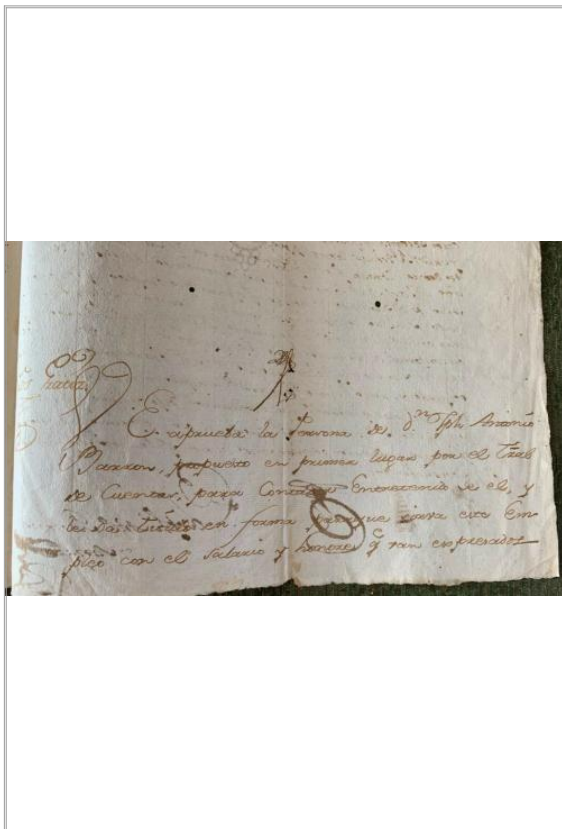 E aprueba la Persona de dn. Jph Antonio
Barron, propuesto en primer lugar por el Tral
de Cuentas, para Contador Entretenido de el, y
le Da Titulo en forma para este Em
pleo con el Salario y honores q̃ van expresados